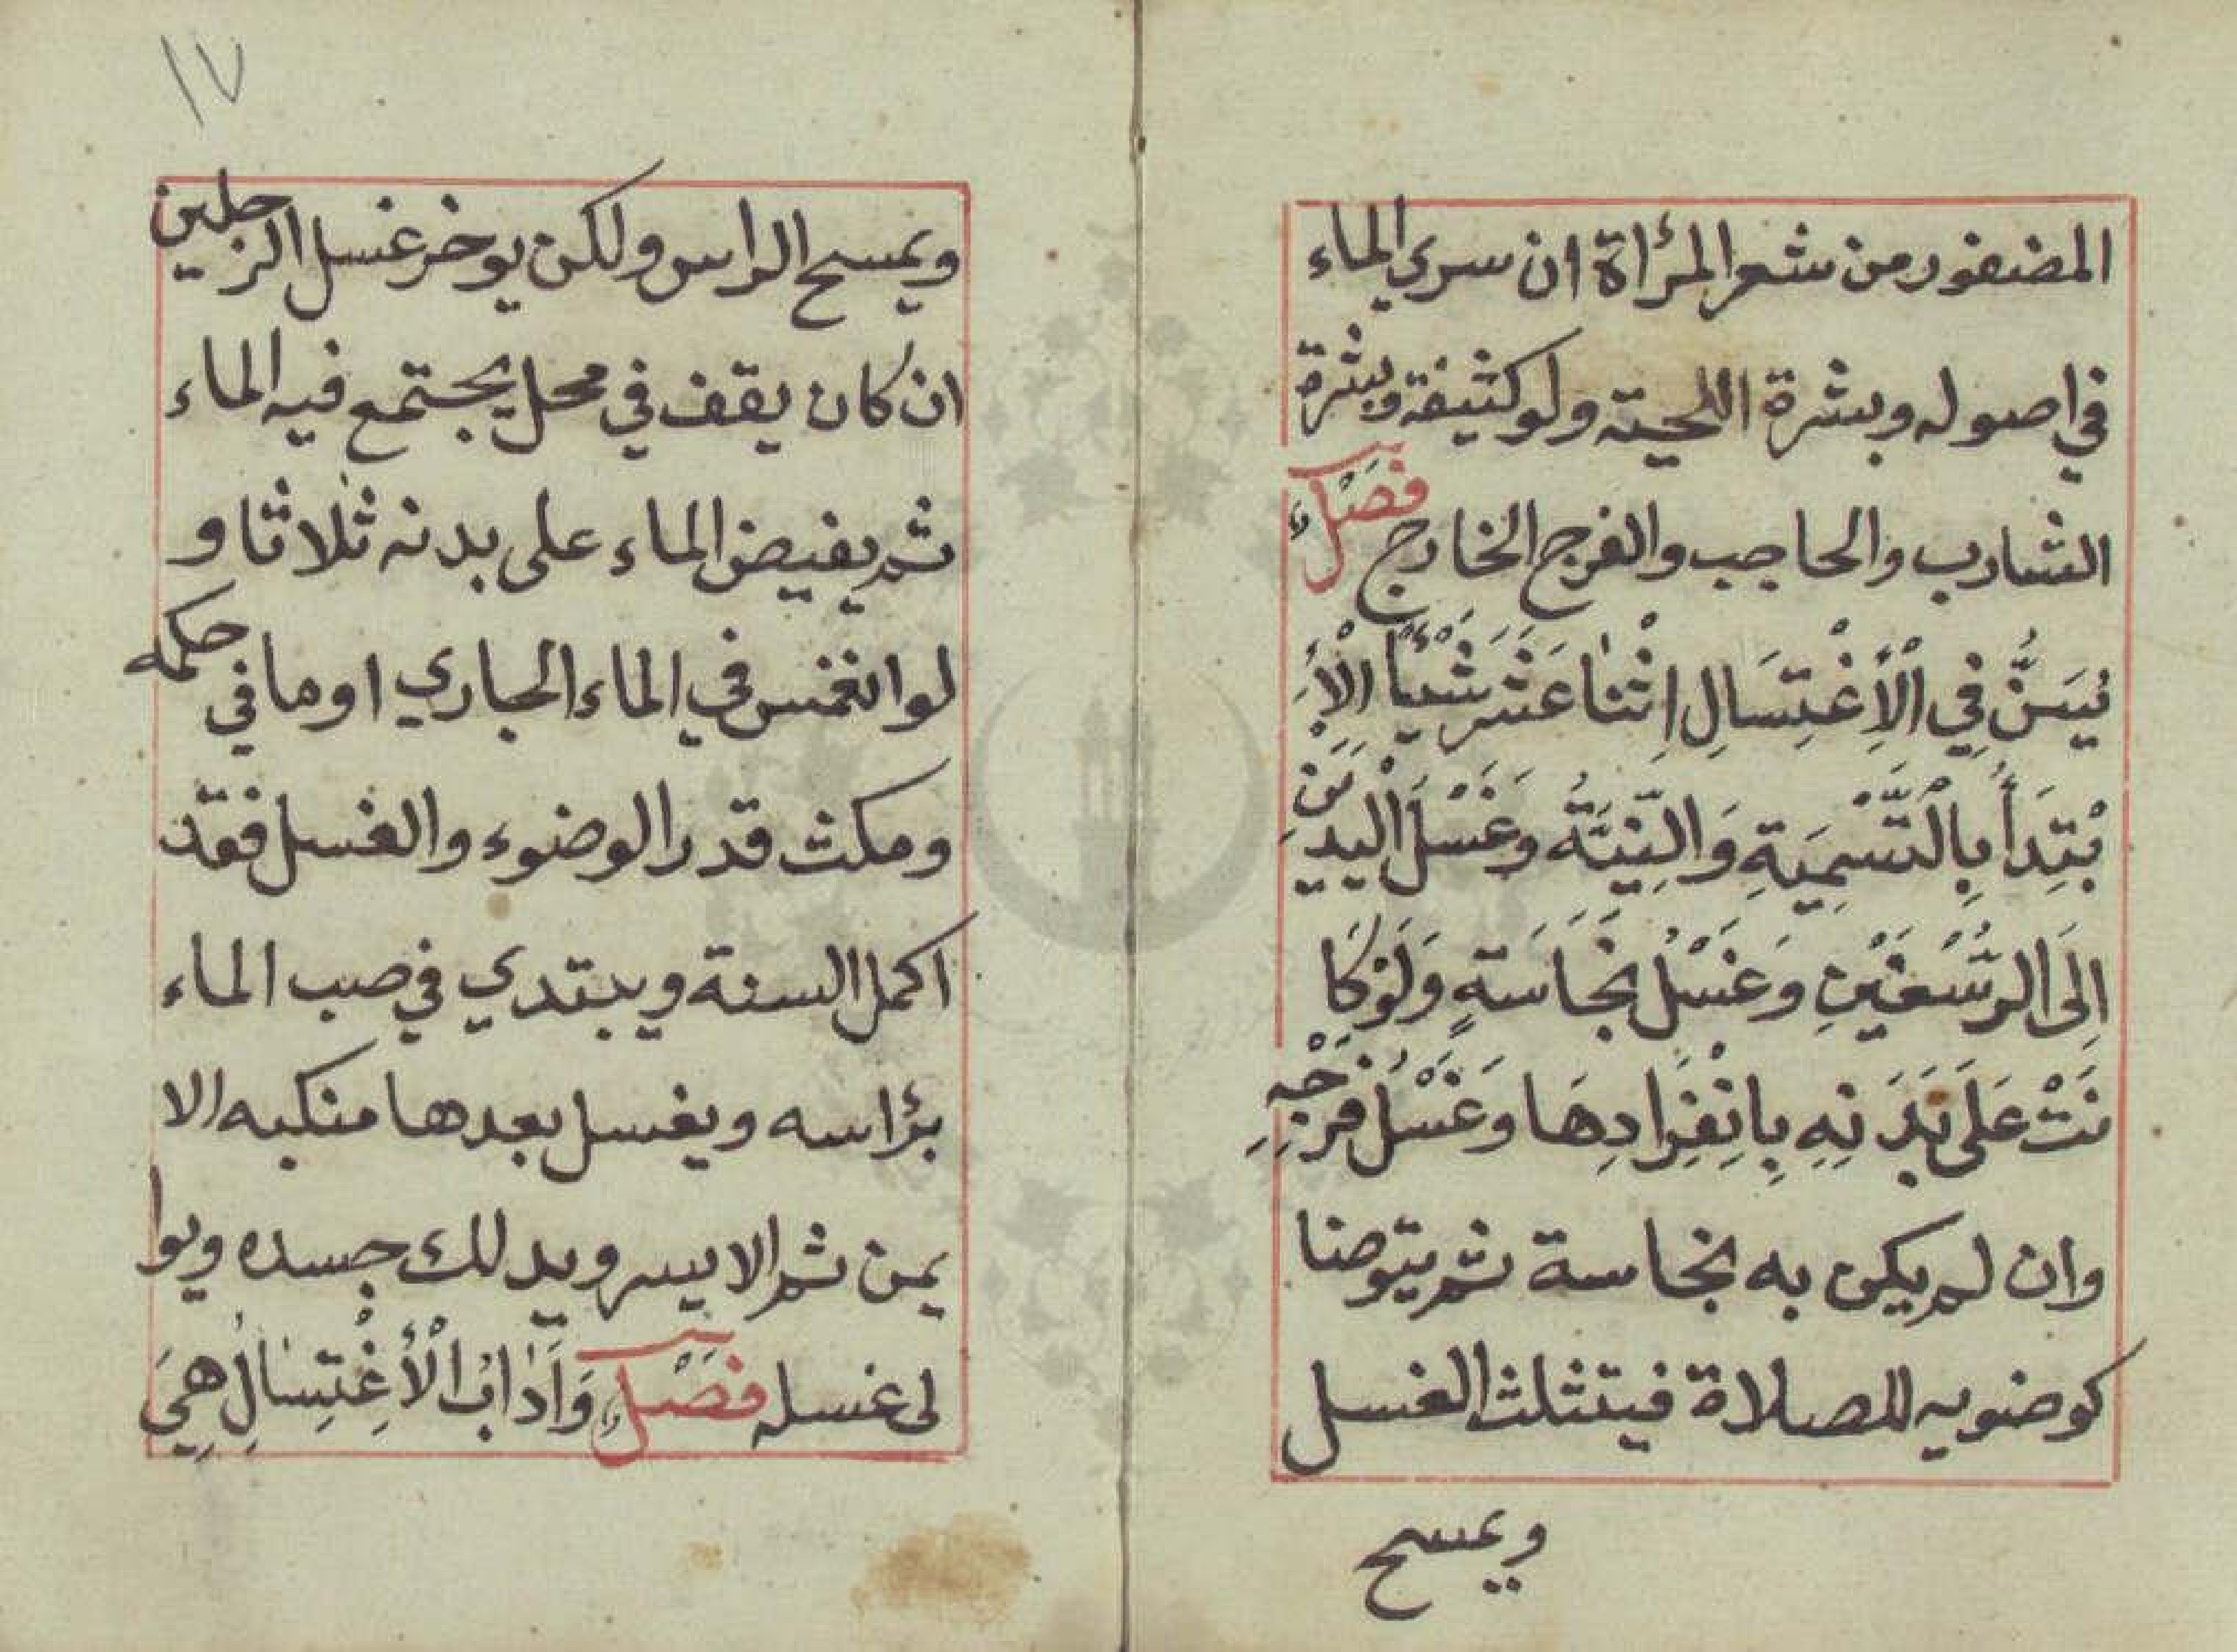 المضفور من شعر المرأة ان سري الماء
في اصوله وبشرة اللحية ولو كثيفة وبشرة
الشارب والحاجب والفرج الخارج فَصْلٌ
يُسَنُّ فِي الْأِغْتِسَالِ اِثْنَا عَشَرَ شَيْئًا الْأِ
بْتِدَأُ بِالْتَّسْمِيَةِ وَالنِّيَّةُ وَغَسْلُ الْيَدَيْنِ
اِلَى الرُّسْغَيْنِ وَغَسْلُ نَجَاسَةٍ وَلَوْ كَا
نَتْ عَلَى بَدَنِهِ بِانْفِرَادِهَا وَغَسْلُ فَرْجِهِ
وان لم يكن به نجاسة ثم يتوضا
كوضويه للصلاة فيتثلث الغسل
ويمسح
١٧
ويمسح الراس ولكن يوخر غسل الرجلين
ان كان يقف في محل يجتمع فيه الماء
ثم يفيض الماء على بدنه ثلاثا و
لو انغمس في الماء الجاري او ما في حكمه
ومكث قدر الوضوء والغسل فقد
اكمل السنة ويبتدي في صب الماء
برٔاسه ويغسل بعدها منكبه الا
يمن ثم الايسر ويدلك جسده ويوا
لى غسله فَصْلٌ وَآدَابُ الْأِغْتِسَالِ هِيَ